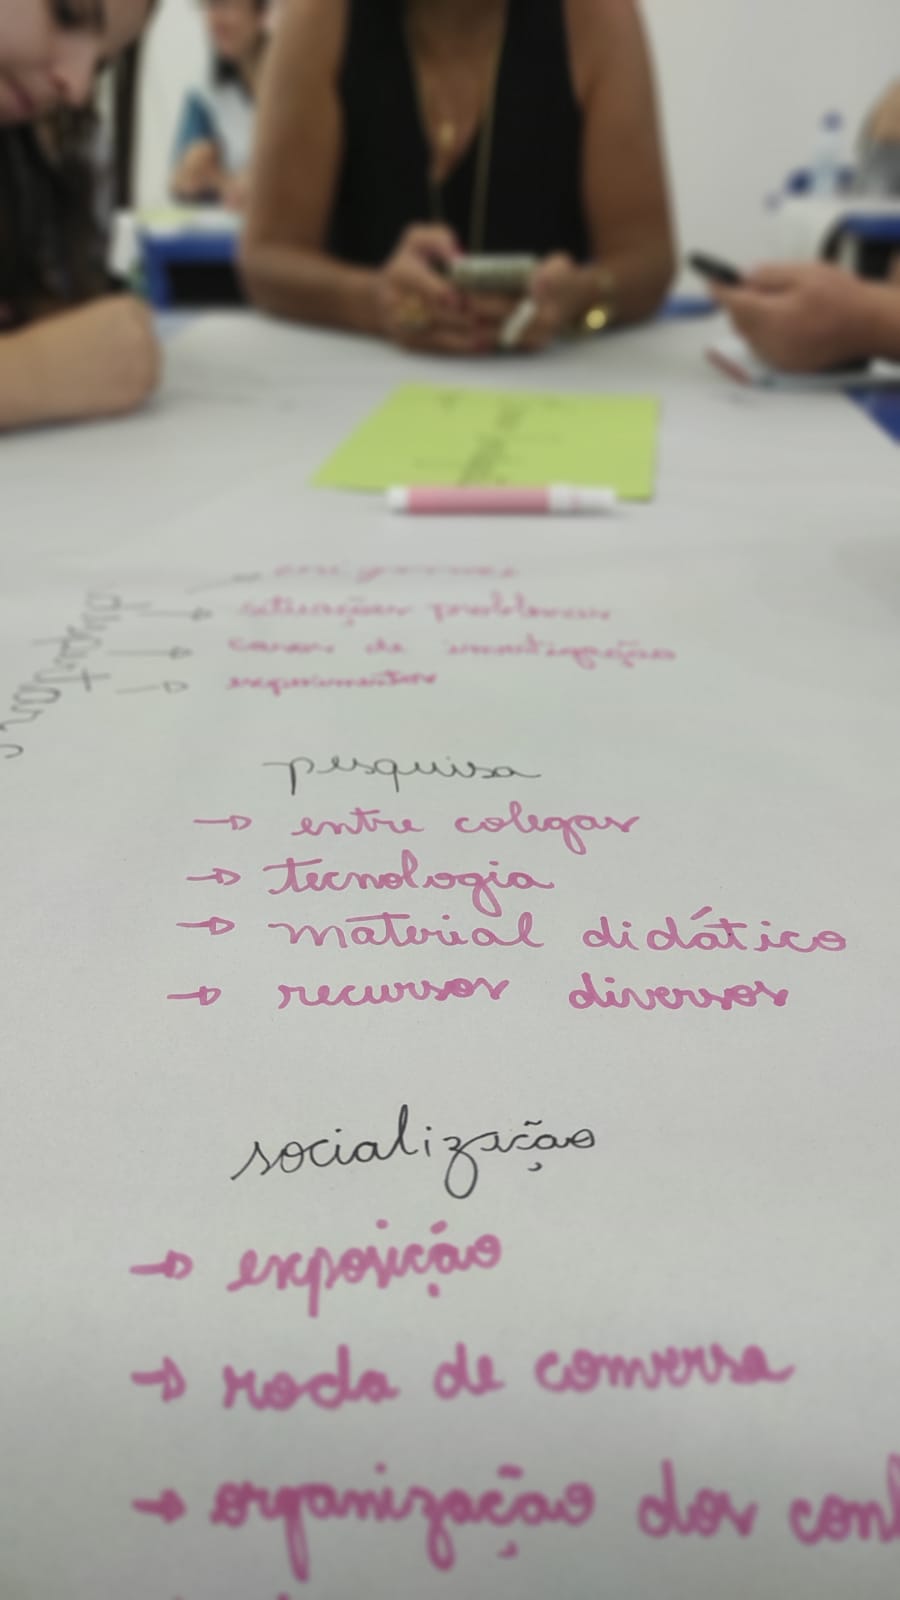 situações problemas
casos de investigação
experimentos
pesquisa
→ entre colegas
→ tecnologia
→ material didático
→ recursos diversos
socialização
→ exposição
→ roda de conversa
→ organização dos